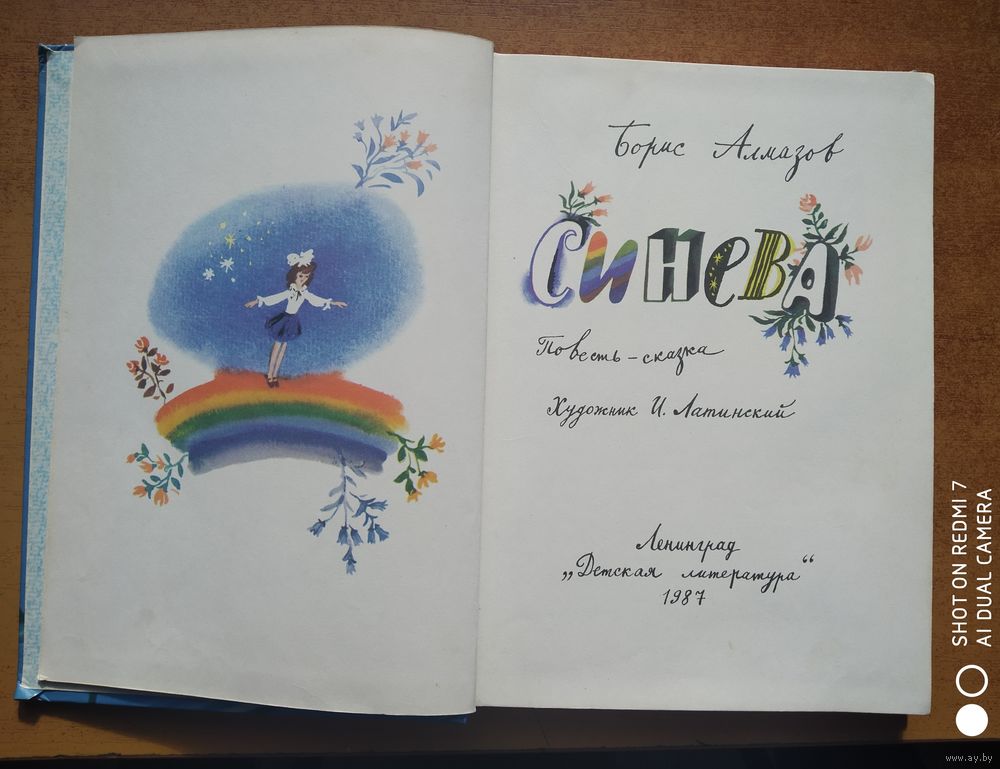 Борис Алмазов
СИНЕВА
Повесть-сказка
Художник И. Латинский
Ленинград
„Детская литература“
1987
SHOT ON REDMI 7
AI DUAL CAMERA
www.ay.by